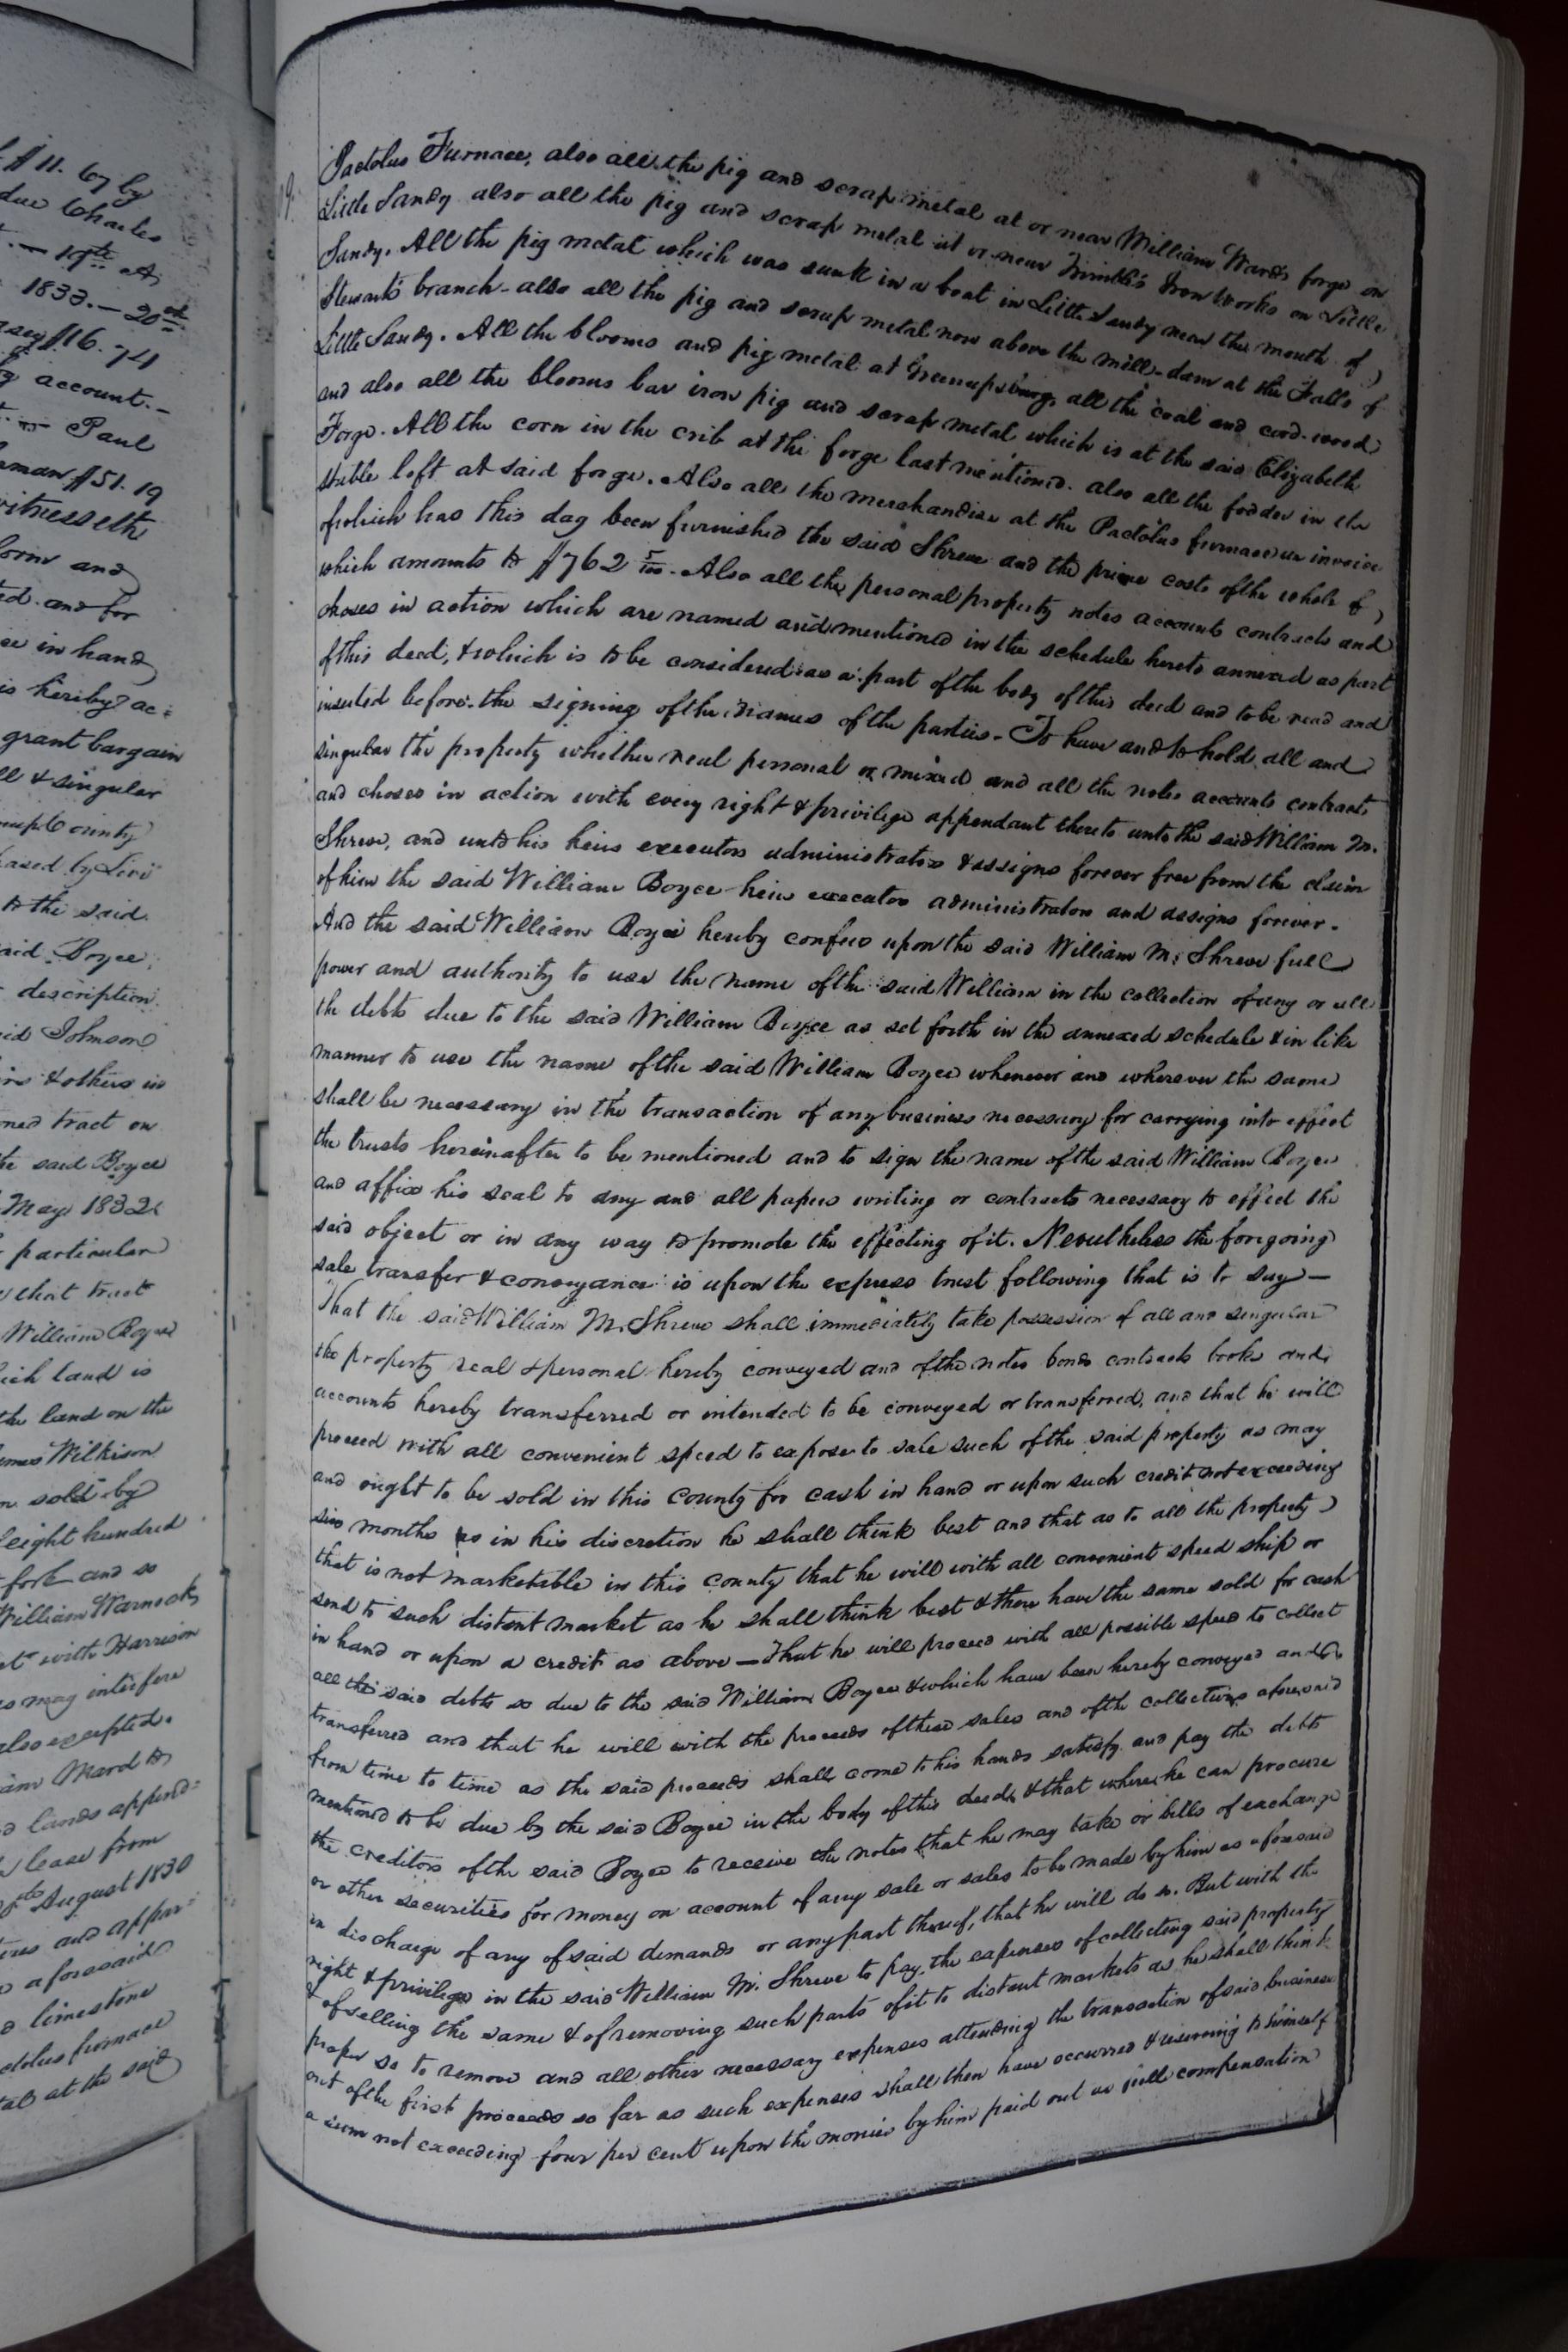 $11. 67 by
due Charles
19th A
1833.— 20th
$16. 74
account.—
Paul
man $51. 19
witnesseth
and
ed. and for
in hand
is hereby ac=
grant bargain
& singular
county
ased by Levi
to the said
said Boyce
description
Johnson
& others in
ned tract on
the said Boyce
May 1832
particular
that tract
William Boyce
ich land is
the land on the
James Wilkison
sold by
eight hundred
fork and so
William Warnock
with Harrison
as may interfere
also excepted.
Ward to
lands append=
lease from
August 1830
and appur=
aforesaid
limestone
Pactolus furnace
at the said
Pactolus Furnace, also all the pig and scrap metal at or near William Wards forge on
Little Sandy also all the pig and scrap metal at or near Trimble's Iron Works on Little
Sandy. All the pig metal which was sunk in a boat in Little Sandy near the mouth of
Stewart's branch - also all the pig and scrap metal now above the mill-dam at the Falls of
Little Sandy. All the blooms and pig metal at Greenupsburg, all the coal and cord-wood
and also all the blooms bar iron pig and scrap metal which is at the said Elizabeth
Forge. All the corn in the crib at the forge last mentioned. also all the fodder in the
stable loft at said forge. Also all the merchandise at the Pactolus furnace an invoice
of which has this day been furnished the said Shreve and the prime costs of the whole of
which amounts to $762 5/100. Also all the personal property notes accounts contracts and
choses in action which are named and mentioned in the schedule hereto annexed as part
of this deed, & which is to be considered as a part of the body of this deed and to be read and
inserted before the signing of the names of the parties - To have and to hold all and
singular the property whether real personal or mixed and all the notes accounts contracts
and choses in action with every right & privilege appendant thereto unto the said William M.
Shreve, and unto his heirs executors administrators & assigns forever free from the claim
of him the said William Boyce heirs executors administrators and assigns forever.
And the said William Boyce hereby confers upon the said William M. Shreve full
power and authority to use the name of the said William in the collection of any or all
the debts due to the said William Boyce as set forth in the annexed schedule & in like
manner to use the name of the said William Boyce whenever and wherever the same
shall be necessary in the transaction of any business necessary for carrying into effect
the trusts hereinafter to be mentioned and to sign the name of the said William Boyce
and affix his seal to any and all papers writing or contracts necessary to effect the
said object or in any way to promote the effecting of it. Nevertheless the foregoing
sale transfer & conveyance is upon the express trust following that is to say —
That the said William M. Shreve shall immediately take possession of all and singular
the property real & personal hereby conveyed and of the notes bonds contracts books and
accounts hereby transferred or intended to be conveyed or transferred, and that he will
proceed with all convenient speed to expose to sale such of the said property as may
and ought to be sold in this county for cash in hand or upon such credit not exceeding
six months as in his discretion he shall think best and that as to all the property
that is not marketable in this county that he will with all convenient speed ship or
send to such distant market as he shall think best & there have the same sold for cash
in hand or upon a credit as above — That he will proceed with all possible speed to collect
all the said debts so due to the said William Boyce & which have been hereby conveyed and
transferred and that he will with the proceeds of these sales and of the collections aforesaid
from time to time as the said proceeds shall come to his hands satisfy and pay the debts
mentioned to be due by the said Boyce in the body of this deed, & that where he can procure
the creditors of the said Boyce to receive the notes that he may take or bills of exchange
or other securities for money on account of any sale or sales to be made by him as aforesaid
in discharge of any of said demands or any part thereof, that he will do so. But with the
right & privilege in the said William M. Shreve to pay the expenses of collecting said property
& of selling the same & of removing such parts of it to distant markets as he shall think
proper so to remove and all other necessary expenses attending the transaction of said business
out of the first proceeds so far as such expenses shall then have occurred & reserving to himself
a sum not exceeding four per cent upon the monies by him paid out as full compensation